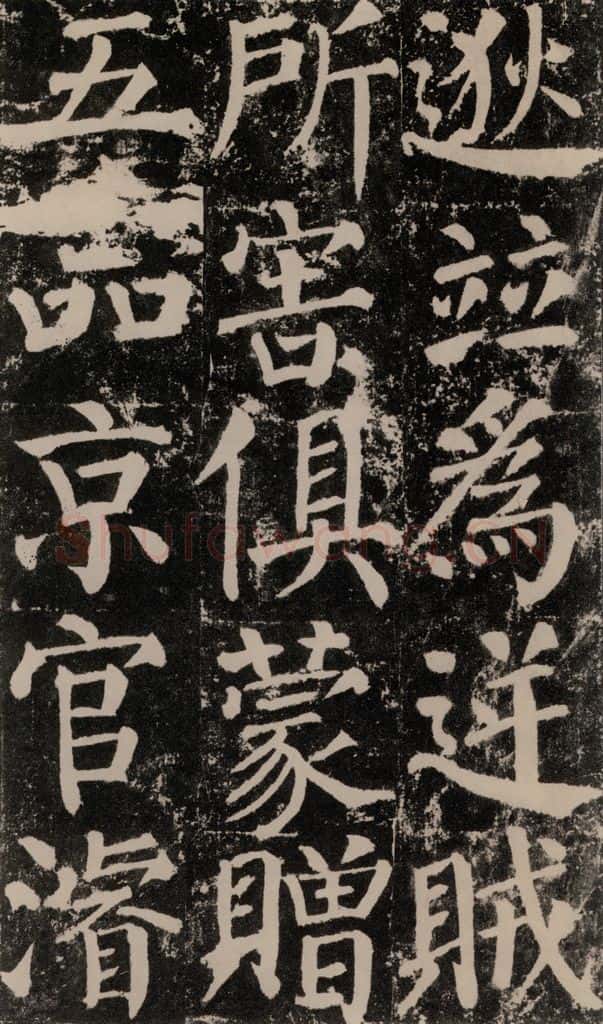 逖竝為逆賊
所害俱蒙贈
五品京官濬
Shufawang.CN